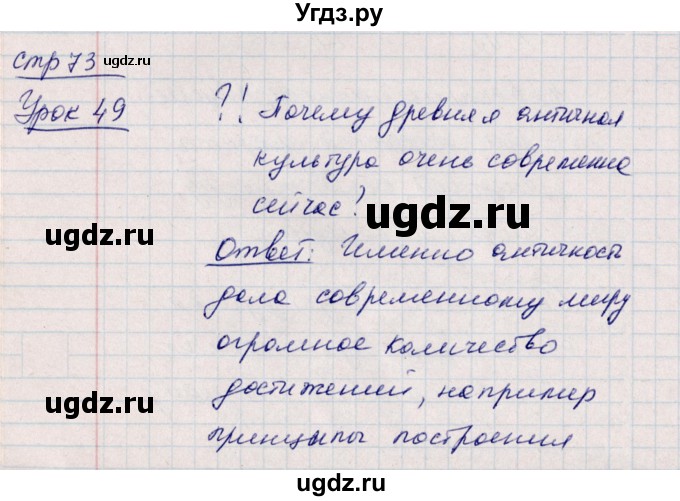 Угдз.ру
стр 73
ugdz.ru
Урок 49
?! Почему древняя античная
культура очень современна
сейчас?
ugdz.ru
ugdz.ru
Ответ: Именно античность
дала современному миру
огромное количество
ugdz.ru
достижений, например
принцыпы построения
ugdz.ru